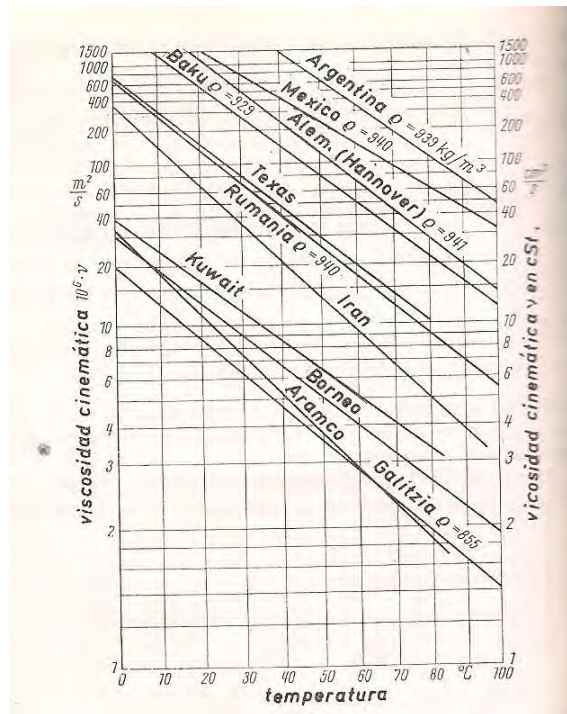 1500
1000
600
400
200
100
60
40
20
10
8
6
4
3
2
1
m²/s
viscosidad cinemática 10⁶·ν
Baku ϱ=929
Argentina ϱ=939 kg/m³
Mexico ϱ=940
Alem. (Hannover) ϱ=941
Texas
Rumania ϱ=940
Iran
Kuwait
Borneo
Aramco
Galitzia ϱ=855
1500
1000
600
400
200
100
60
40
20
10
8
6
4
3
2
1
vicosidad cinemática ν en cSt.
0 10 20 30 40 50 60 70 80 °C 100
temperatura